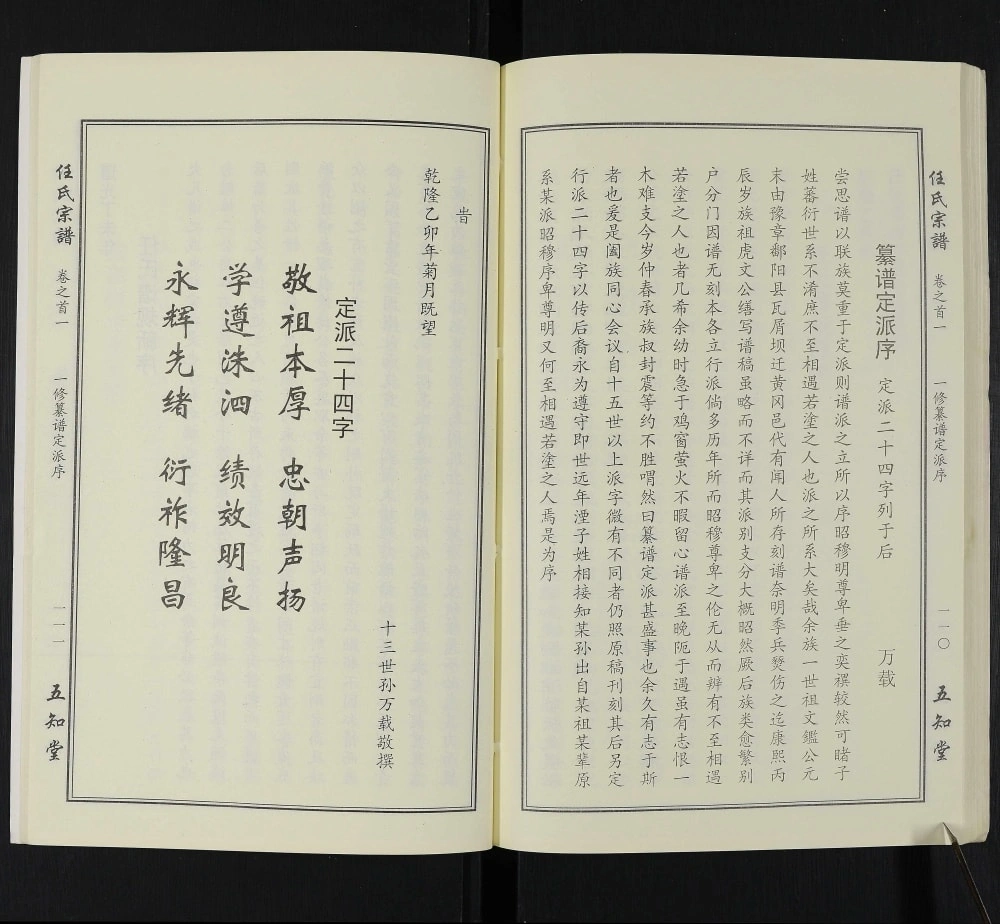 任氏宗譜 卷之首一 一修纂谱定派序 一一〇 五知堂
纂谱定派序 定派二十四字列于后 万载
尝思谱以联族莫重于定派则谱派之立所以序昭穆明尊卑垂之奕禩较然可睹子
姓蕃衍世系不淆庶不至相遇若塗之人也派之所系大矣哉余族一世祖文鑑公元
末由豫章鄱阳县瓦屑坝迁黄冈邑代有闻人所存刻谱奈明季兵燹伤之迄康熙丙
辰岁族祖虎文公缮写谱稿虽略而不详而其派别支分大概昭然厥后族类愈繁别
户分门因谱无刻本各立行派倘多历年所而昭穆尊卑之伦无从而辨有不至相遇
若塗之人也者几希余幼时急于鸡窗萤火不暇留心谱派至晚阨于遇虽有志恨一
木难支今岁仲春承族叔封震等约不胜喟然曰纂谱定派甚盛事也余久有志于斯
者也爰是阖族同心会议自十五世以上派字微有不同者仍照原稿刊刻其后另定
行派二十四字以传后裔永为遵守即世远年湮子姓相接知某孙出自某祖某辈原
系某派昭穆序卑尊明又何至相遇若塗之人焉是为序
旹
乾隆乙卯年菊月既望
十三世孙万载敬撰
定派二十四字
敬祖本厚 忠朝声扬
学遵洙泗 绩效明良
永辉先绪 衍祚隆昌
任氏宗譜 卷之首一 一修纂谱定派序 一一一 五知堂